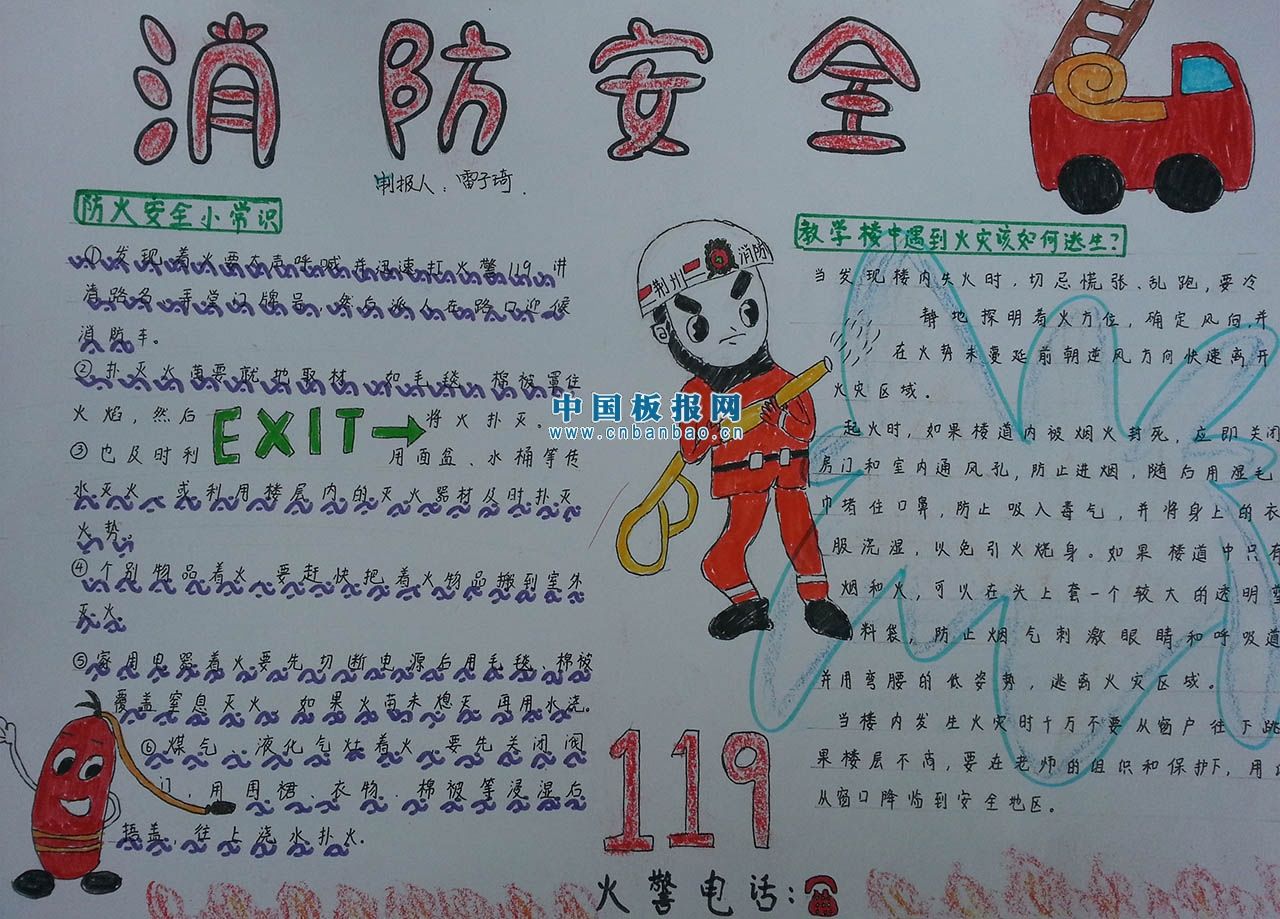 消防安全
制报人：雷子琦.
防火安全小常识
①发现着火要大声呼喊并迅速打火警119，讲
清路名、弄堂门牌号，然后派人在路口迎候
消防车。
②扑灭火苗要就地取材，如毛毯、棉被罩住
火焰，然后将火扑灭。
EXIT
③也及时利用面盆、水桶等传
水灭火，或利用楼层内的灭火器材及时扑灭
火势。
④个别物品着火，要赶快把着火物品搬到室外
灭火。
⑤家用电器着火要先切断电源后用毛毯、棉被
覆盖窒息灭火，如果火苗未熄灭，再用水浇。
⑥煤气、液化气灶着火，要先关闭阀
门，用围裙、衣物、棉被等浸湿后
捂盖，往上浇水扑火。
荆州消防
中国板报网
www.cnbanbao.cn
119
火警电话：
教学楼中遇到火灾该如何逃生？
当发现楼内失火时，切忌慌张、乱跑，要冷
静地探明着火方位，确定风向，并
在火势未蔓延前朝逆风方向快速离开
火灾区域。
起火时，如果楼道内被烟火封死，立即关闭
房门和室内通风孔，防止进烟，随后用湿毛
巾堵住口鼻，防止吸入毒气，并将身上的衣
服浇湿，以免引火烧身。如果楼道中只有
烟和火，可以在头上套一个较大的透明塑
料袋，防止烟气刺激眼睛和呼吸道
并用弯腰的低姿势，逃离火灾区域。
当楼内发生火灾时千万不要从窗户往下跳
果楼层不高，要在老师的组织和保护下，用
从窗口降临到安全地区。